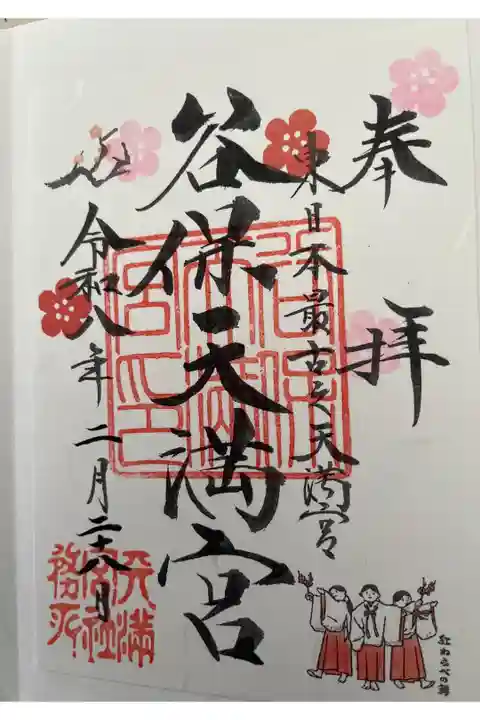 奉拝
東日本最古之天満宮
谷保天満宮
令和八年二月二十八日
天満
宮社
務所
紅わらべの舞